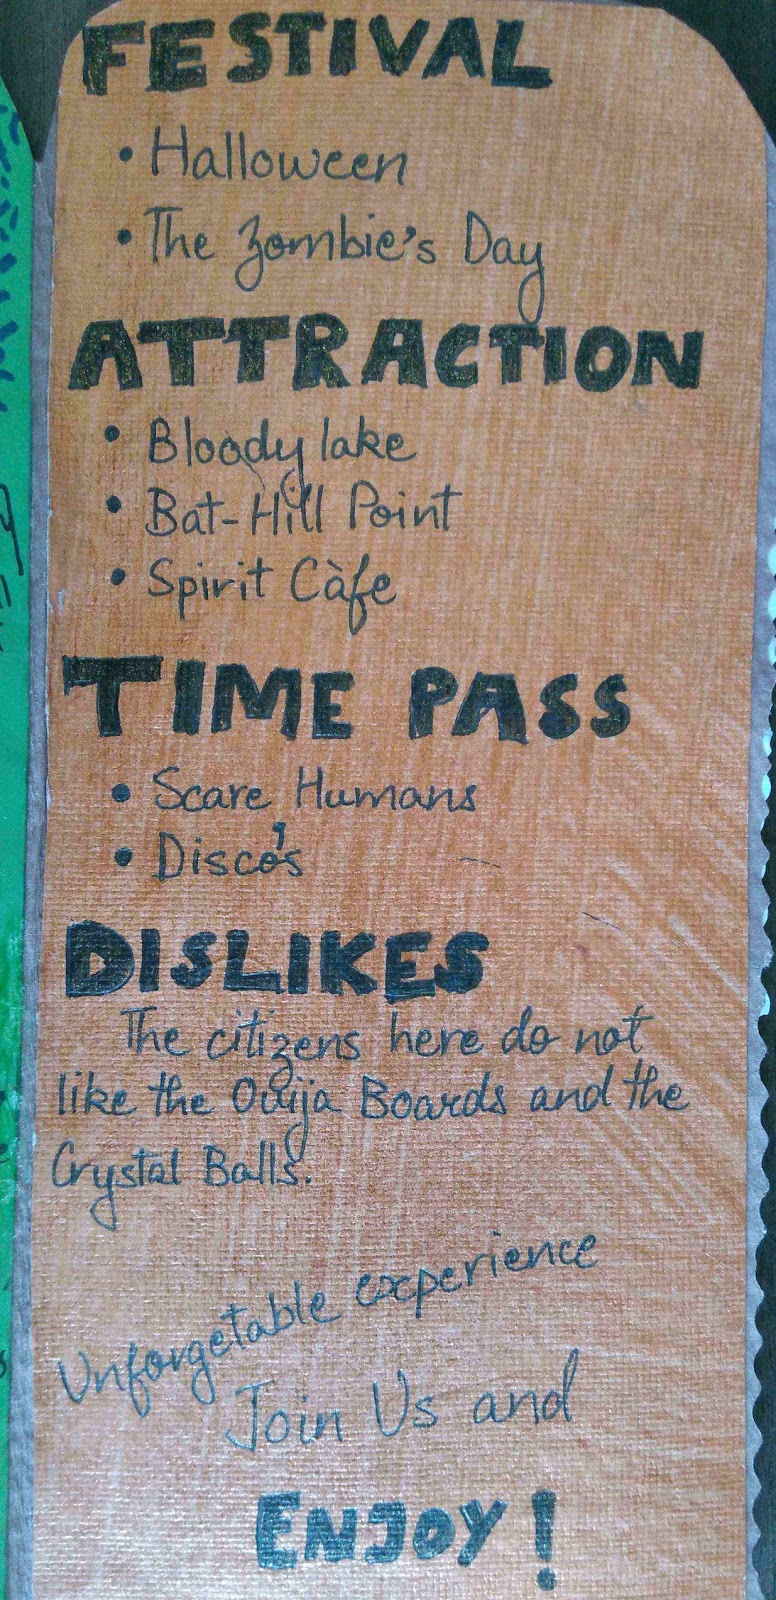 FESTIVAL
• Halloween
• The Zombie's Day
ATTRACTION
• Bloody lake
• Bat-Hill Point
• Spirit Càfe
TIME PASS
• Scare Humans
• Disco's
DISLIKES
The citizens here do not
like the Ouija Boards and the
Crystal Balls.
Unforgetable experience
Join Us and
ENJOY!